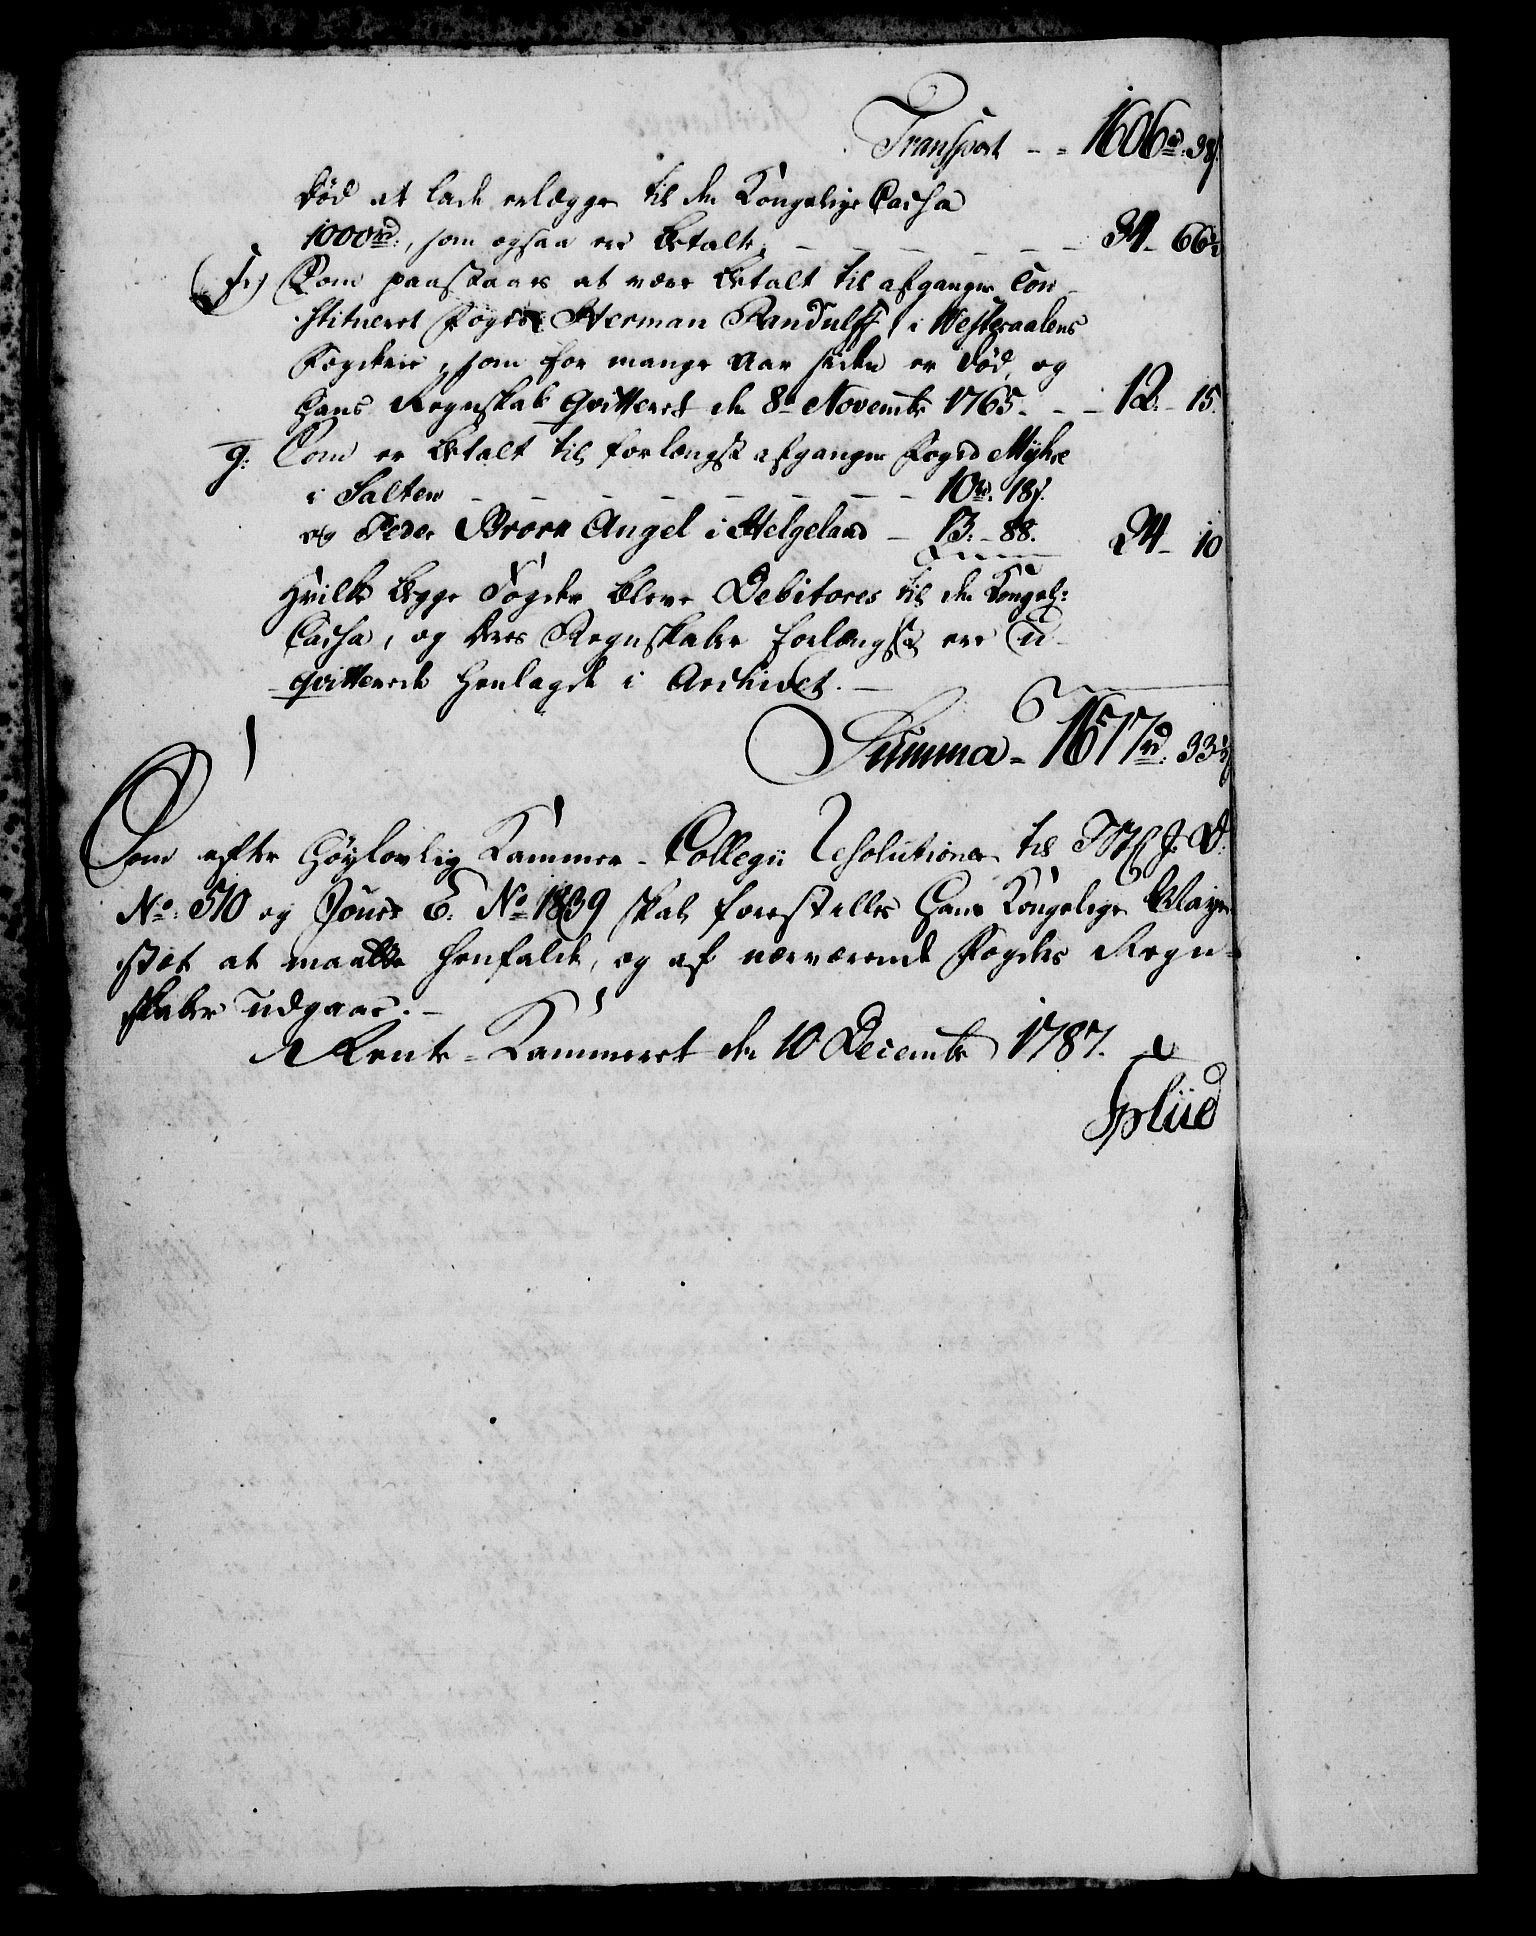 Transport - - 1606 rd. 38 s.
Død at lade erlægge til den Kongelige Cassa
1000 rd., som ogsaa ere betalte. - - - - - - 34 - 66
f.) Som paastaaes at være betalt til afgangne Con-
stitueret Foged Herman Randulff i Westeraalens
Fogderie, som for mange Aar siden er Død, og
hans Regnskab qvitteret den 8de Novembr 1765. - - - 12. - 15.
g: Som er betalt til forlængst afgangne Foged Myhre
i Salten - - - - - - - - 10 rd. 18 s.
og Peder Broch Angel i Helgeland - 13. - 88. 24 - 10
Hvilke begge Fogder bleve Debitores til den Kongel:
Cassa, og deres Regnskaber forlængst ere u-
qvitterede henlagde i Archivet. -
Summa - 1677 rd. 33
Som efter Høylovlig Kammer-Collegii Resolutioner til
No. 510 og Jour: E. No. 1839 skal forestilles Hans Kongelige Maye-
stæt at maatte henfalde, og af nærværende Fogders Regn-
skaber udgaae. -
Rente-Kammeret den 10 Decembr 1787.